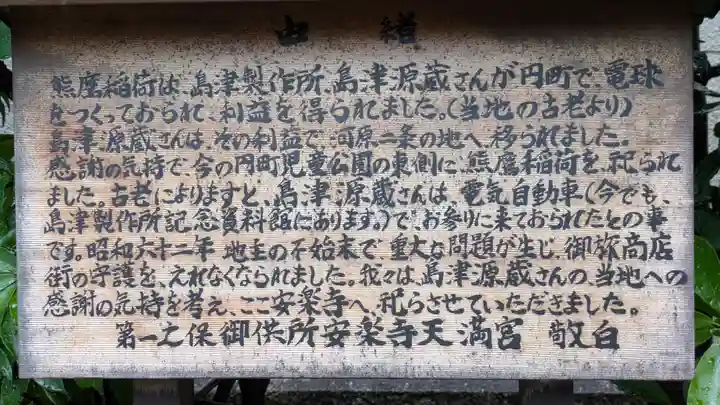 由緒
熊鷹稲荷は、島津製作所、島津源蔵さんが円町で、電球
をつくっておられ、利益を得られました。(当地の古老より)
島津源蔵さんは、その利益で、河原二条の地へ、移られました。
感謝の気持で、今の円町児童公園の東側に、熊鷹稲荷を、祀られ
ました。古老によりますと、島津源蔵さんは、電気自動車(今でも、
島津製作所記念資料館にあります。)で、お参りに来ておられたとの事
です。昭和六十二年 地主の不始末で、重大な問題が生じ、御旅商店
街の守護を、えれなくなられました。我々は、島津源蔵さんの、当地への
感謝の気持を考え、ここ安楽寺へ、祀らさせていただきました。
第一之保御供所安楽寺天満宮 敬白